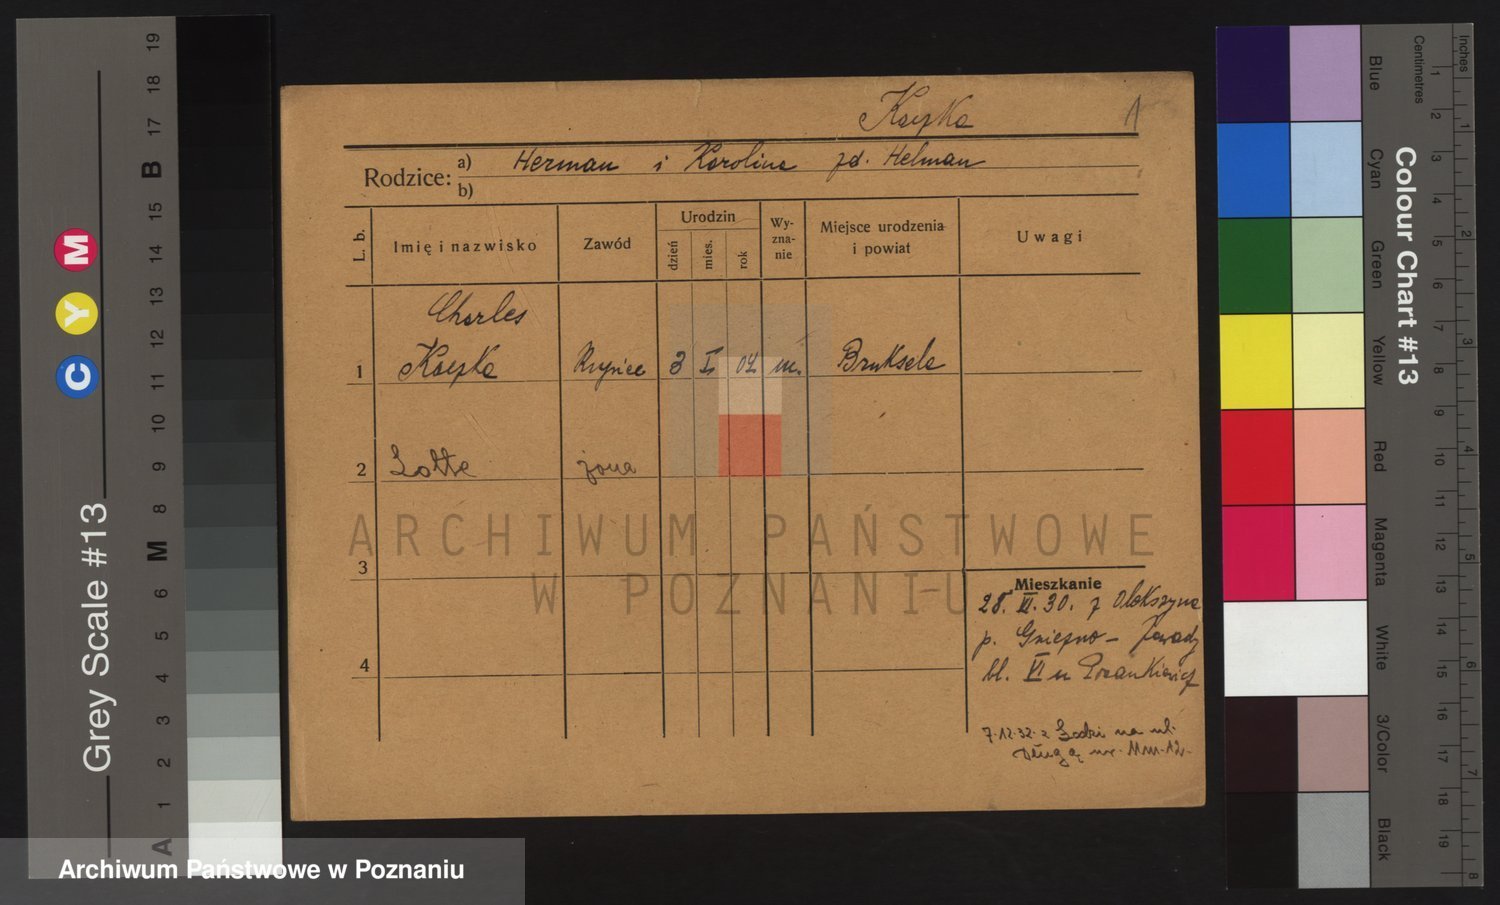 Kaczka
1
Rodzice: a) Herman i Karolina zd. Helman
b)
L. b.
Imię i nazwisko
Zawód
Urodzin
dzień
mies.
rok
Wy-
zna-
nie
Miejsce urodzenia
i powiat
Uwagi
Charles
1 3 I. 02 m. Bruksela
2 Lotte żona
3
4
ARCHIWUM PAŃSTWOWE
W POZNANIU
Mieszkanie
28. VI. 30. z
p. Gniezno -
bl. VI u
7.12.32. z Łodzi na ul.
Długą nr.
Archiwum Państwowe w Poznaniu
Grey Scale #13
C Y M
A 1 2 3 4 5 6 M 8 9 10 11 12 13 14 15 B 17 18 19
Colour Chart #13
Blue
Cyan
Green
Yellow
Red
Magenta
White
3/Color
Black
Centimetres
1 2 3 4 5 6 7 8 9 10 11 12 13 14 15 16 17 18 19
Inches
1 2 3 4 5 6 7 8